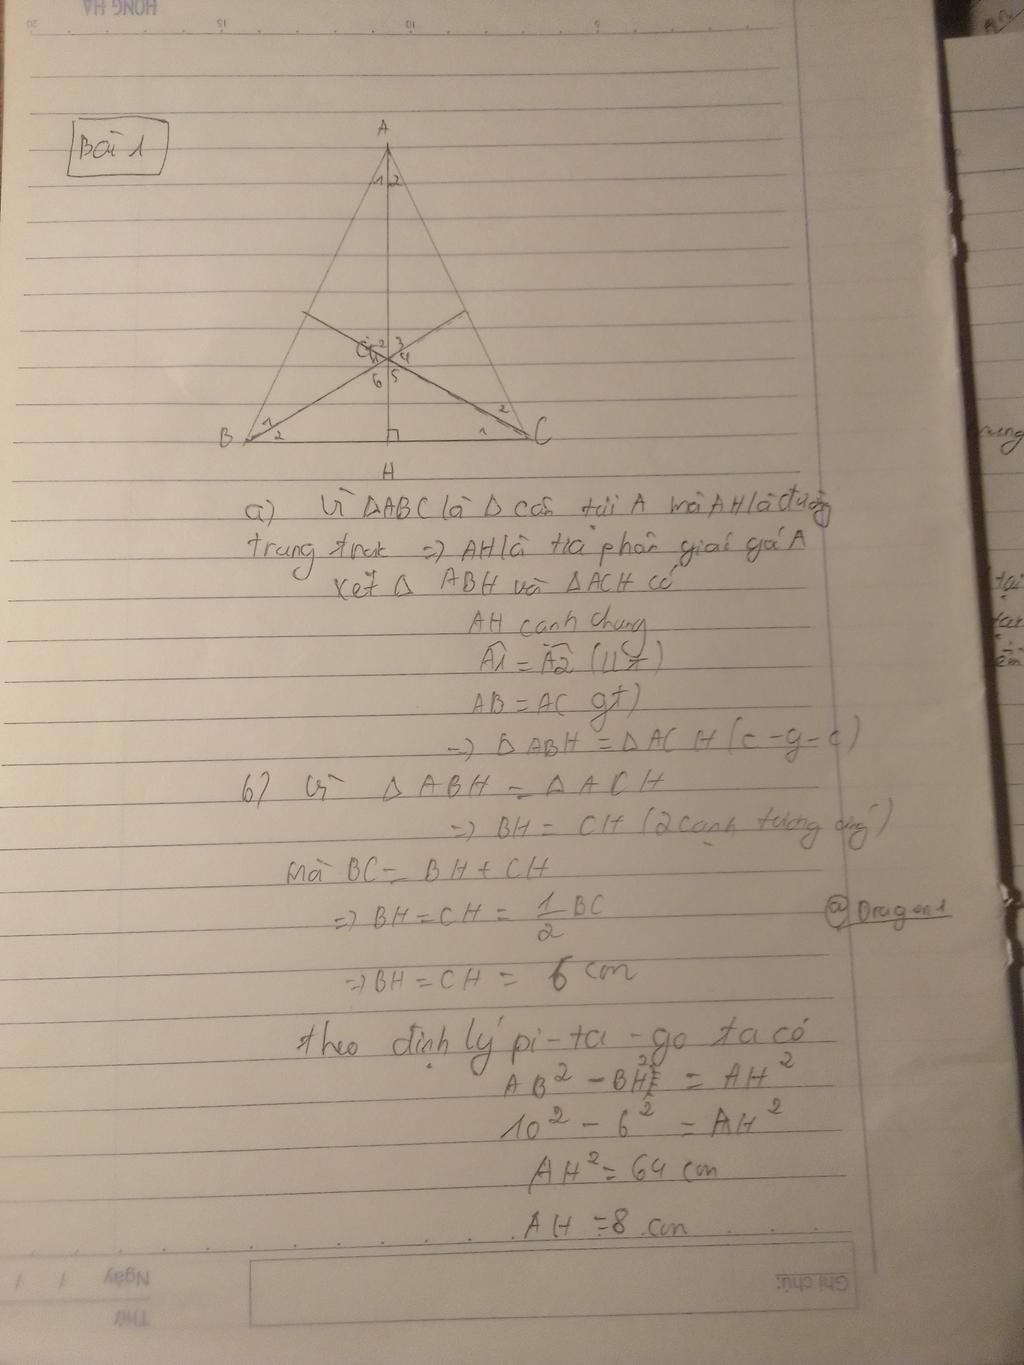 HONG HA
20 15 10 5
Bài 1
A
1 2
2 3
1 4
6 5
1 2
2 1
B C
H
a) Vì ΔABC là Δ cân tại A mà AH là đường
trung trực => AH là tia phân giác góc A
xét Δ ABH và ΔACH có
AH cạnh chung
A1 = A2
AB = AC gt)
=> Δ ABH = Δ ACH (c-g-c)
b) Vì Δ ABH = Δ ACH
=> BH = CH (2 cạnh tương ứng)
Mà BC = BH + CH
=> BH = CH = 1/2 BC
@Dragon1
=> BH = CH = 6 cm
theo định lý pi-ta-go ta có
AB² - BH² = AH²
10² - 6² = AH²
AH² = 64 cm
AH = 8 cm
Ngày / /
Thứ
Ghi chú: